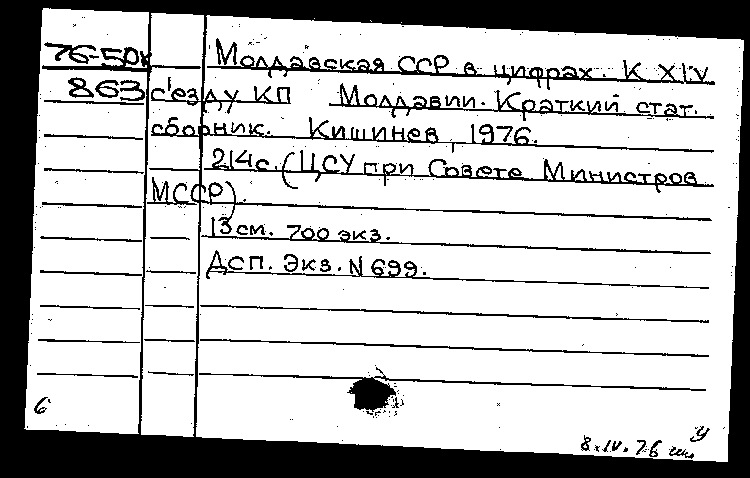 76-5Дк Молдавская ССР в цифрах. К XIV
863 с'езду КП Молдавии. Краткий стат.
сборник. Кишинев, 1976.
214с. (ЦСУ при Совете Министров
МССР).
13 см. 700 экз.
ДСП. Экз. N 699.
6
У
8.IV.76